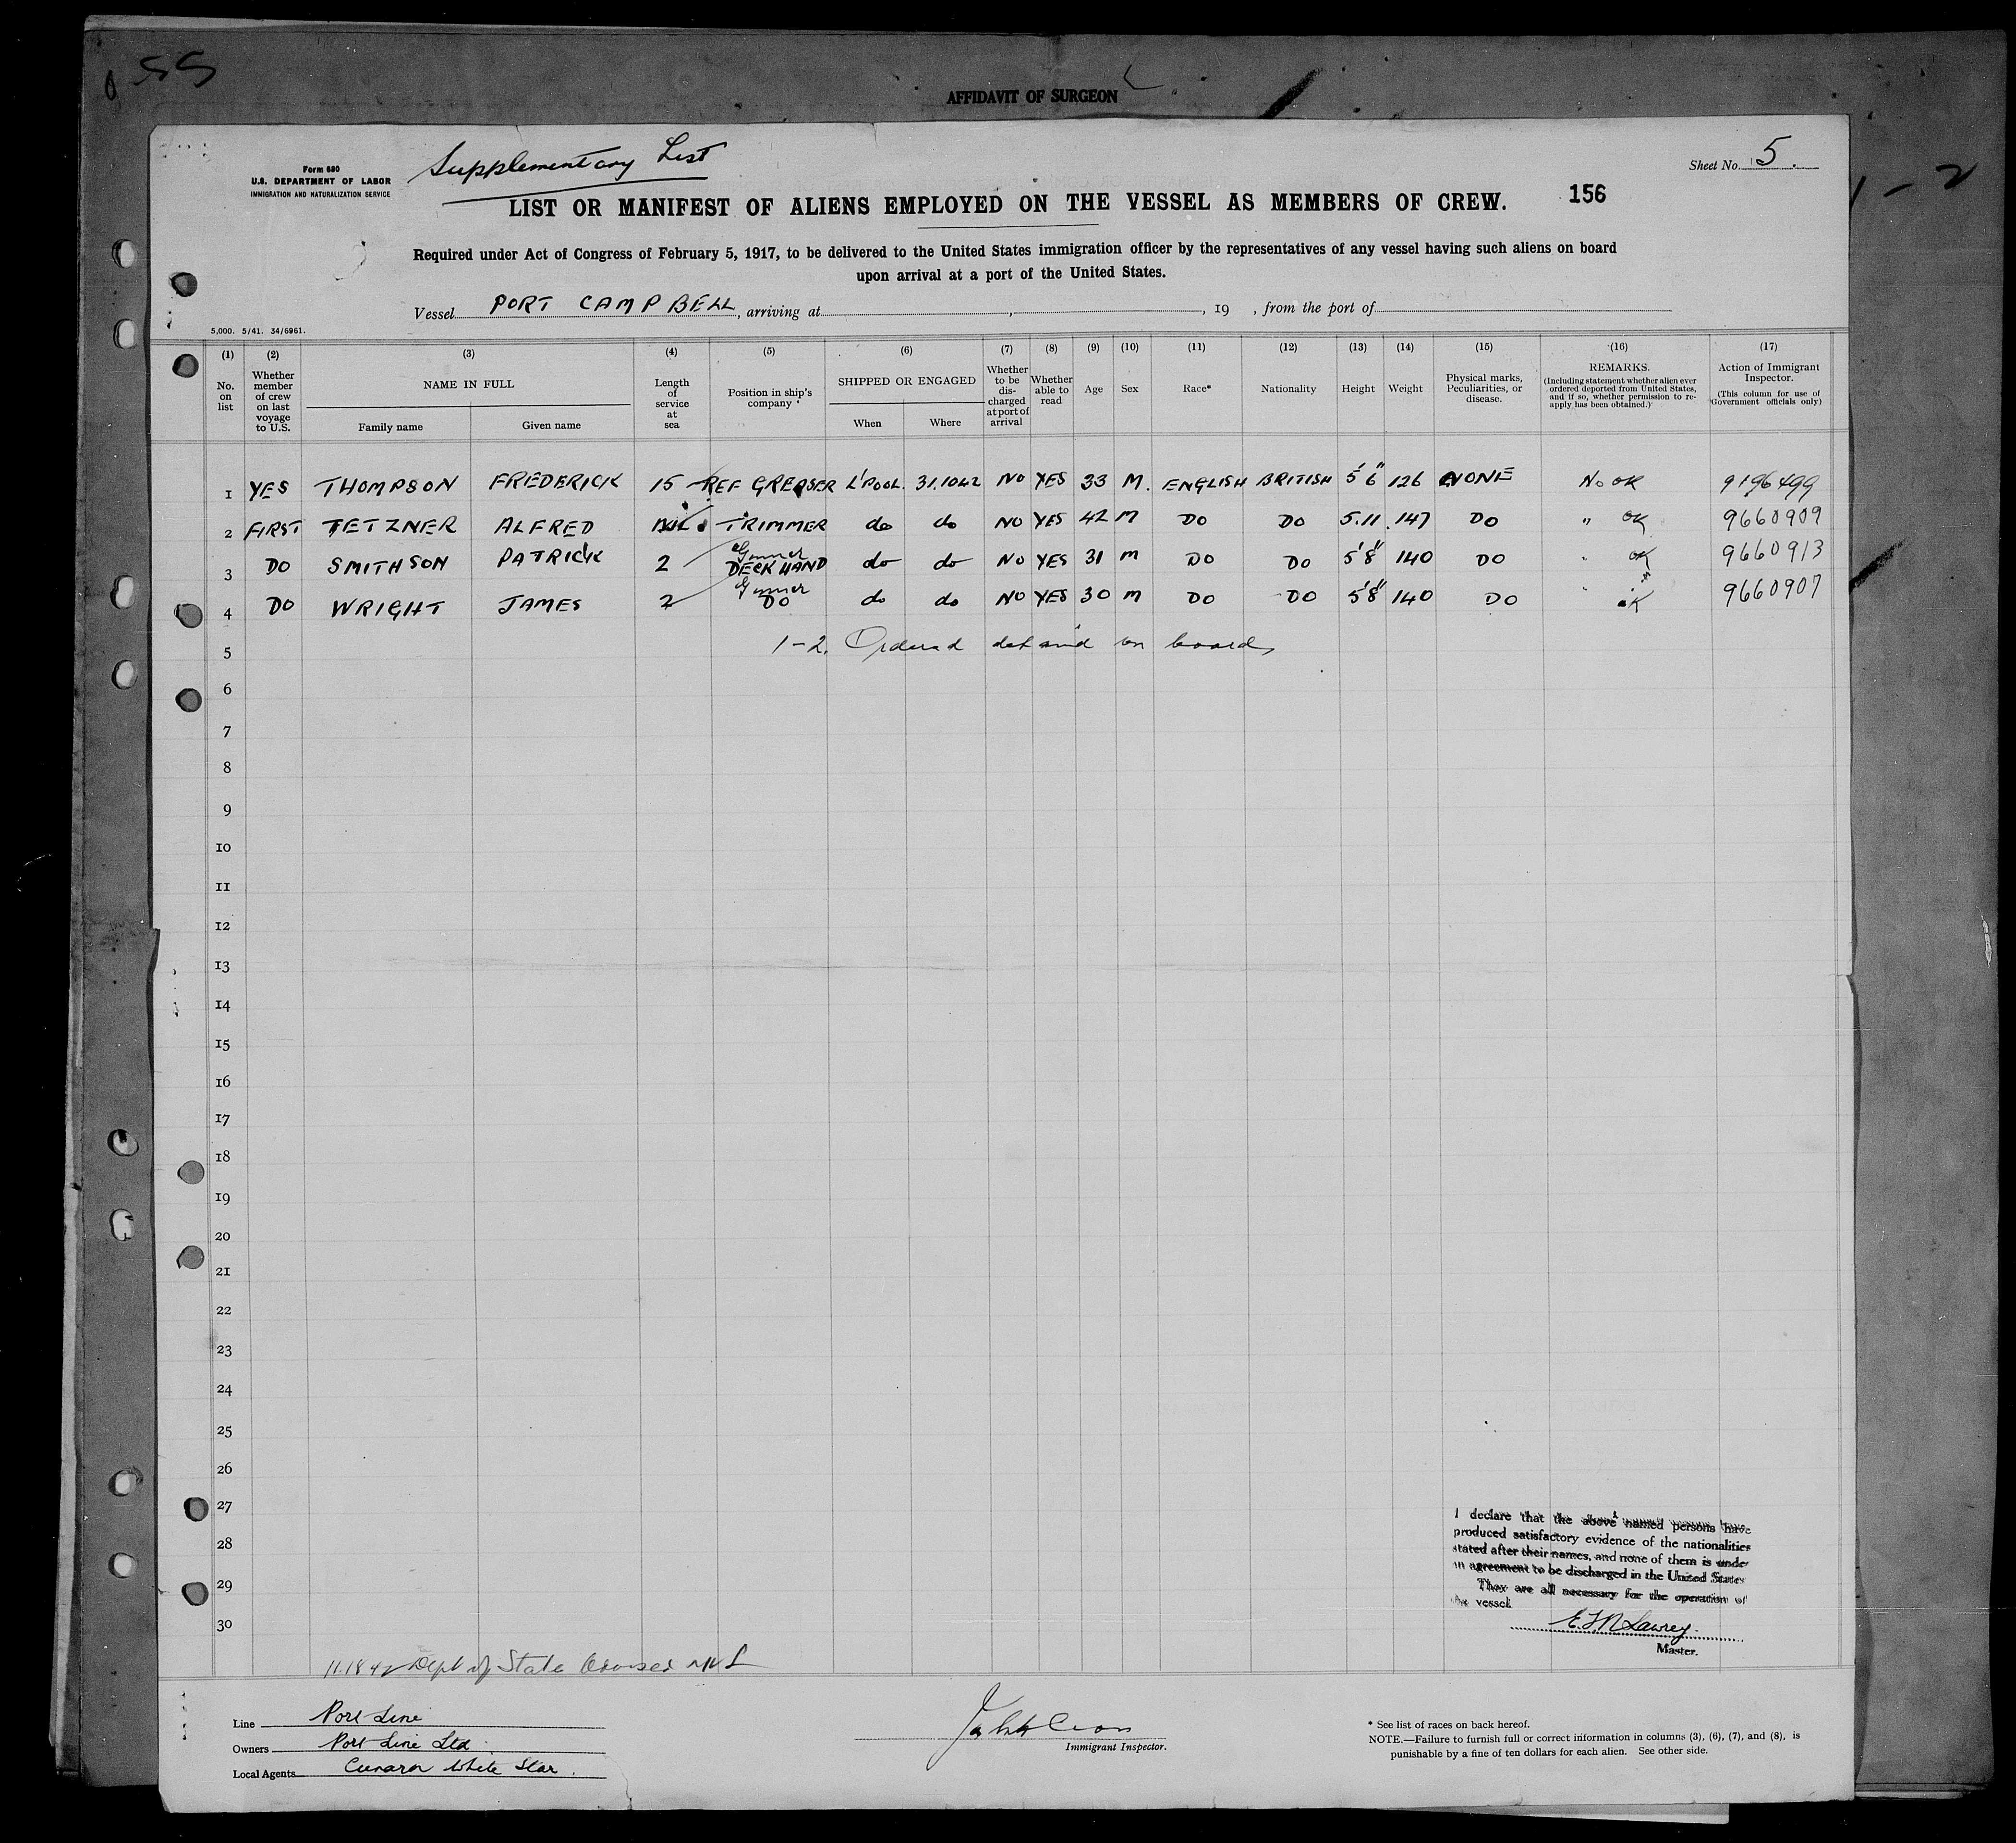 55
AFFIDAVIT OF SURGEON
Supplementary List
Form 680
U.S. DEPARTMENT OF LABOR
IMMIGRATION AND NATURALIZATION SERVICE
Sheet No. 5.
1-2
LIST OR MANIFEST OF ALIENS EMPLOYED ON THE VESSEL AS MEMBERS OF CREW.
156
Required under Act of Congress of February 5, 1917, to be delivered to the United States immigration officer by the representatives of any vessel having such aliens on board
upon arrival at a port of the United States.
Vessel PORT CAMPBELL, arriving at , , 19 , from the port of
5,000. 5/41. 34/6961.
(1) (2) (3) (4) (5) (6) (7) (8) (9) (10) (11) (12) (13) (14) (15) (16) (17)
No. on list
Whether member of crew on last voyage to U.S.
NAME IN FULL
Family name Given name
Length of service at sea
Position in ship's company
SHIPPED OR ENGAGED
When Where
Whether to be discharged at port of arrival
Whether able to read
Age
Sex
Race*
Nationality
Height
Weight
Physical marks, Peculiarities, or disease.
REMARKS.
(Including statement whether alien ever ordered deported from United States, and if so, whether permission to reapply has been obtained.)
Action of Immigrant Inspector.
(This column for use of Government officials only)
1 YES THOMPSON FREDERICK 15 REF GREASER L'POOL. 31.10.42 NO YES 33 M. ENGLISH BRITISH 5'6" 126 NONE No OK 9196499
2 FIRST TETZNER ALFRED TRIMMER do do NO YES 42 M DO DO 5.11 147 DO " OK 9660909
3 DO SMITHSON PATRICK 2 Gunner DECK HAND do do NO YES 31 M DO DO 5'8" 140 DO " OK 9660913
4 DO WRIGHT JAMES 2 Gunner DO do do NO YES 30 M DO DO 5'8" 140 DO " OK 9660907
5 1-2. Ordered detained on board
6
7
8
9
10
11
12
13
14
15
16
17
18
19
20
21
22
23
24
25
26
27
28
29
30
I declare that the above named persons have
produced satisfactory evidence of the nationalities
stated after their names, and none of them is under
in agreement to be discharged in the United States
They are all necessary for the operation of
the vessel.
Master.
11.18.42 Dept of State
Line Port Line
Owners Port Line Ltd.
Local Agents Cunard White Star.
Immigrant Inspector.
* See list of races on back hereof.
NOTE.—Failure to furnish full or correct information in columns (3), (6), (7), and (8), is
punishable by a fine of ten dollars for each alien. See other side.